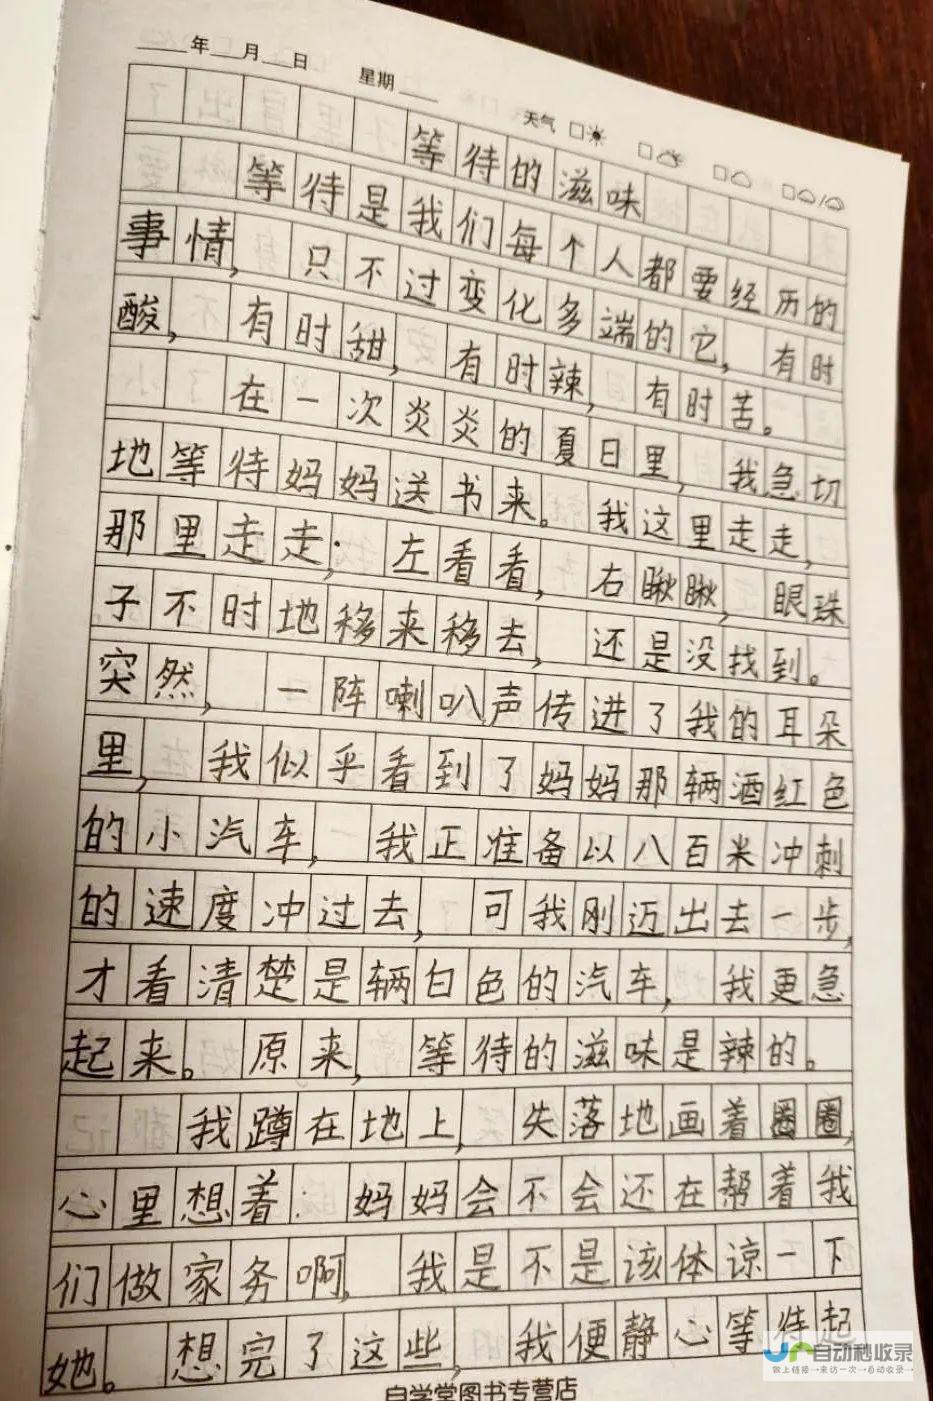 年 月 日 星期 天气
等待的滋味
等待是我们每个人都要经历的
事情，只不过变化多端的它，有时
酸，有时甜，有时辣，有时苦。
在一次炎炎的夏日里，我急切
地等待妈妈送书来。我这里走走，
那里走走；左看看，右瞅瞅，眼珠
子不时地移来移去，还是没找到。
突然，一阵喇叭声传进了我的耳朵
里，我似乎看到了妈妈那辆酒红色
的小汽车，我正准备以八百米冲刺
的速度冲过去，可我刚迈出去一步，
才看清楚是辆白色的汽车，我更急
起来。原来，等待的滋味是辣的。
我蹲在地上，失落地画着圈圈，
心里想着：妈妈会不会还在帮着我
们做家务啊，我是不是该体谅一下
她。想完了这些，我便静心等待起
自动秒收录
做上链接→来访一次→自动收录
自学堂图书专营店